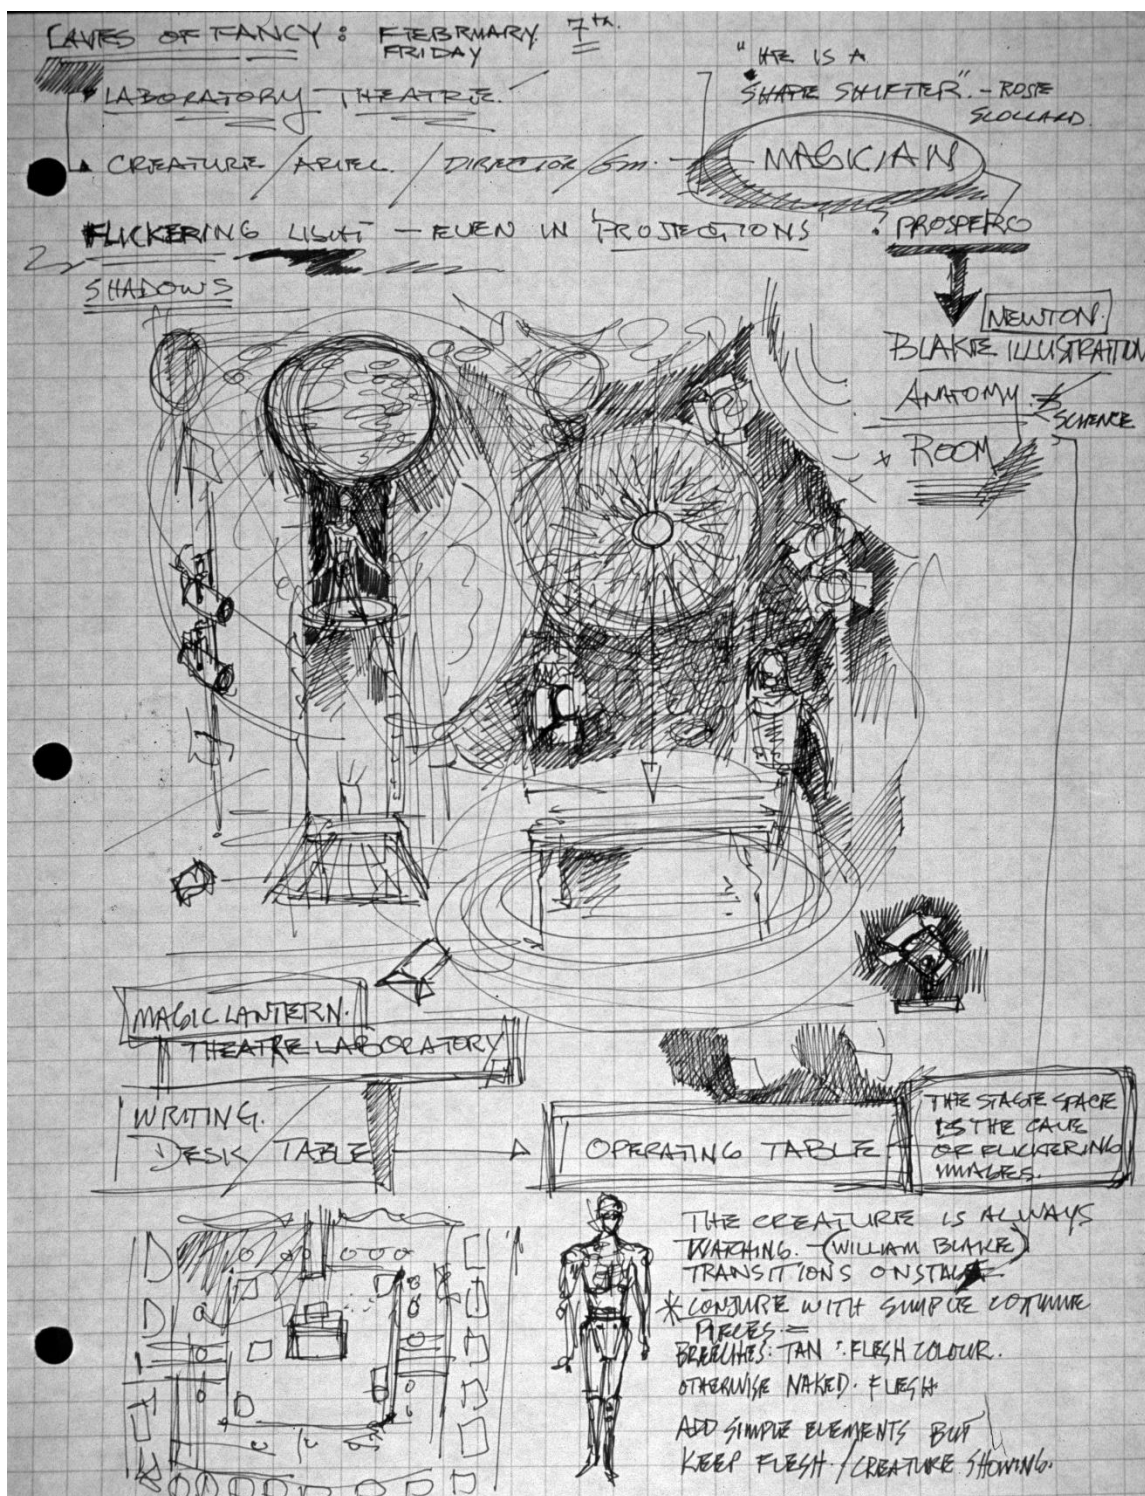 CAVES OF FANCY: FEBRUARY 7th.
FRIDAY
LABORATORY THEATRE.
"HE IS A
SHAPE SHIFTER". - ROSIE
SCOLLARD.
CREATURE / ARIEL / DIRECTOR / SM. - MAGICIAN
FLICKERING LIGHT - EVEN IN PROJECTIONS
? PROSPERO
SHADOWS
NEWTON.
BLAKE ILLUSTRATION
ANATOMY
SCIENCE
ROOM
MAGIC LANTERN.
THEATRE LABORATORY
WRITING.
DESK TABLE
OPERATING TABLE
THE STAGE SPACE
IS THE CAVE
OF FLICKERING
IMAGES.
THE CREATURE IS ALWAYS
WATCHING. - (WILLIAM BLAKE)
TRANSITIONS ONSTAGE
* CONJURE WITH SIMPLE COSTUME
PIECES =
BREECHES: TAN : FLESH COLOUR.
OTHERWISE NAKED. FLESH
ADD SIMPLE ELEMENTS BUT
KEEP FLESH / CREATURE SHOWING.